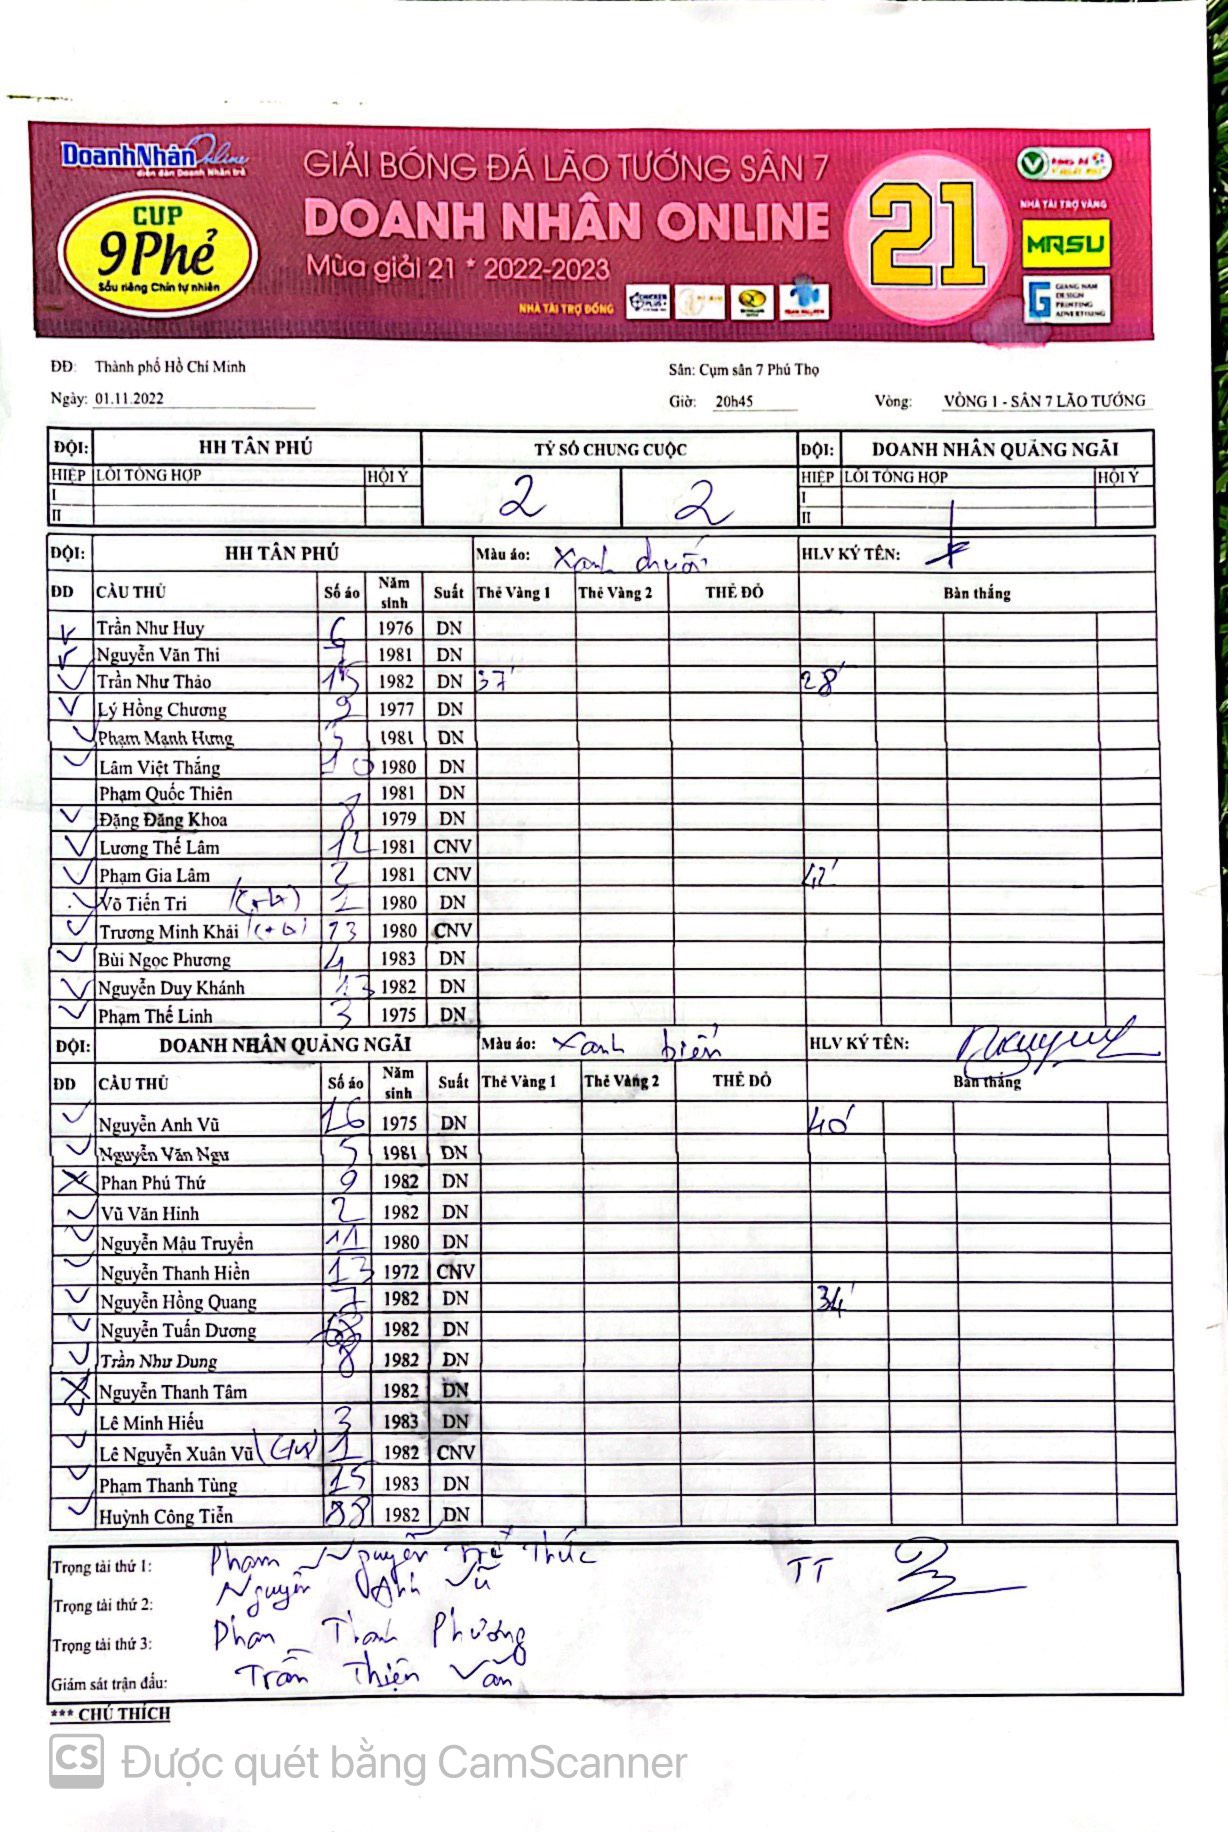 DoanhNhân Online
diễn đàn Doanh Nhân trẻ
CUP
9Phẻ
Sầu riêng Chín tự nhiên
GIẢI BÓNG ĐÁ LÃO TƯỚNG SÂN 7
DOANH NHÂN ONLINE
Mùa giải 21 * 2022-2023
NHÀ TÀI TRỢ ĐỒNG
21
NHÀ TÀI TRỢ VÀNG
MRSU
GIANG NAM
DESIGN
PRINTING
ADVERTISING
ĐĐ: Thành phố Hồ Chí Minh Sân: Cụm sân 7 Phú Thọ
Ngày: 01.11.2022 Giờ: 20h45 Vòng: VÒNG 1 - SÂN 7 LÃO TƯỚNG
ĐỘI: HH TÂN PHÚ TỶ SỐ CHUNG CUỘC ĐỘI: DOANH NHÂN QUẢNG NGÃI
HIỆP LỖI TỔNG HỢP HỘI Ý 2 2 HIỆP LỖI TỔNG HỢP HỘI Ý
I I
II II
ĐỘI: HH TÂN PHÚ Màu áo: Xanh chuối HLV KÝ TÊN:
ĐD CẦU THỦ Số áo Năm sinh Suất Thẻ Vàng 1 Thẻ Vàng 2 THẺ ĐỎ Bàn thắng
Trần Như Huy 6 1976 DN
Nguyễn Văn Thi 1981 DN
Trần Như Thảo 15 1982 DN 37' 28'
Lý Hồng Chương 9 1977 DN
Phạm Mạnh Hưng 5 1981 DN
Lâm Việt Thắng 10 1980 DN
Phạm Quốc Thiên 1981 DN
Đặng Đăng Khoa 8 1979 DN
Lương Thế Lâm 12 1981 CNV
Phạm Gia Lâm 2 1981 CNV 42'
Võ Tiến Tri 1 1980 DN
Trương Minh Khải 13 1980 CNV
Bùi Ngọc Phương 4 1983 DN
Nguyễn Duy Khánh 13 1982 DN
Phạm Thế Linh 3 1975 DN
ĐỘI: DOANH NHÂN QUẢNG NGÃI Màu áo: Xanh biển HLV KÝ TÊN:
ĐD CẦU THỦ Số áo Năm sinh Suất Thẻ Vàng 1 Thẻ Vàng 2 THẺ ĐỎ Bàn thắng
Nguyễn Anh Vũ 16 1975 DN 40'
Nguyễn Văn Ngư 5 1981 DN
Phan Phú Thứ 9 1982 DN
Vũ Văn Hinh 2 1982 DN
Nguyễn Mậu Truyền 11 1980 DN
Nguyễn Thanh Hiền 13 1972 CNV
Nguyễn Hồng Quang 7 1982 DN 34'
Nguyễn Tuấn Dương 1982 DN
Trần Như Dung 8 1982 DN
Nguyễn Thanh Tâm 1982 DN
Lê Minh Hiếu 3 1983 DN
Lê Nguyễn Xuân Vũ 1 1982 CNV
Phạm Thanh Tùng 15 1983 DN
Huỳnh Công Tiễn 88 1982 DN
Trọng tài thứ 1: Phạm Nguyễn Trí Thức TT
Trọng tài thứ 2: Nguyễn Anh Vũ
Trọng tài thứ 3: Phan Thanh Phương
Giám sát trận đấu: Trần Thiện Văn
*** CHÚ THÍCH
CS Được quét bằng CamScanner